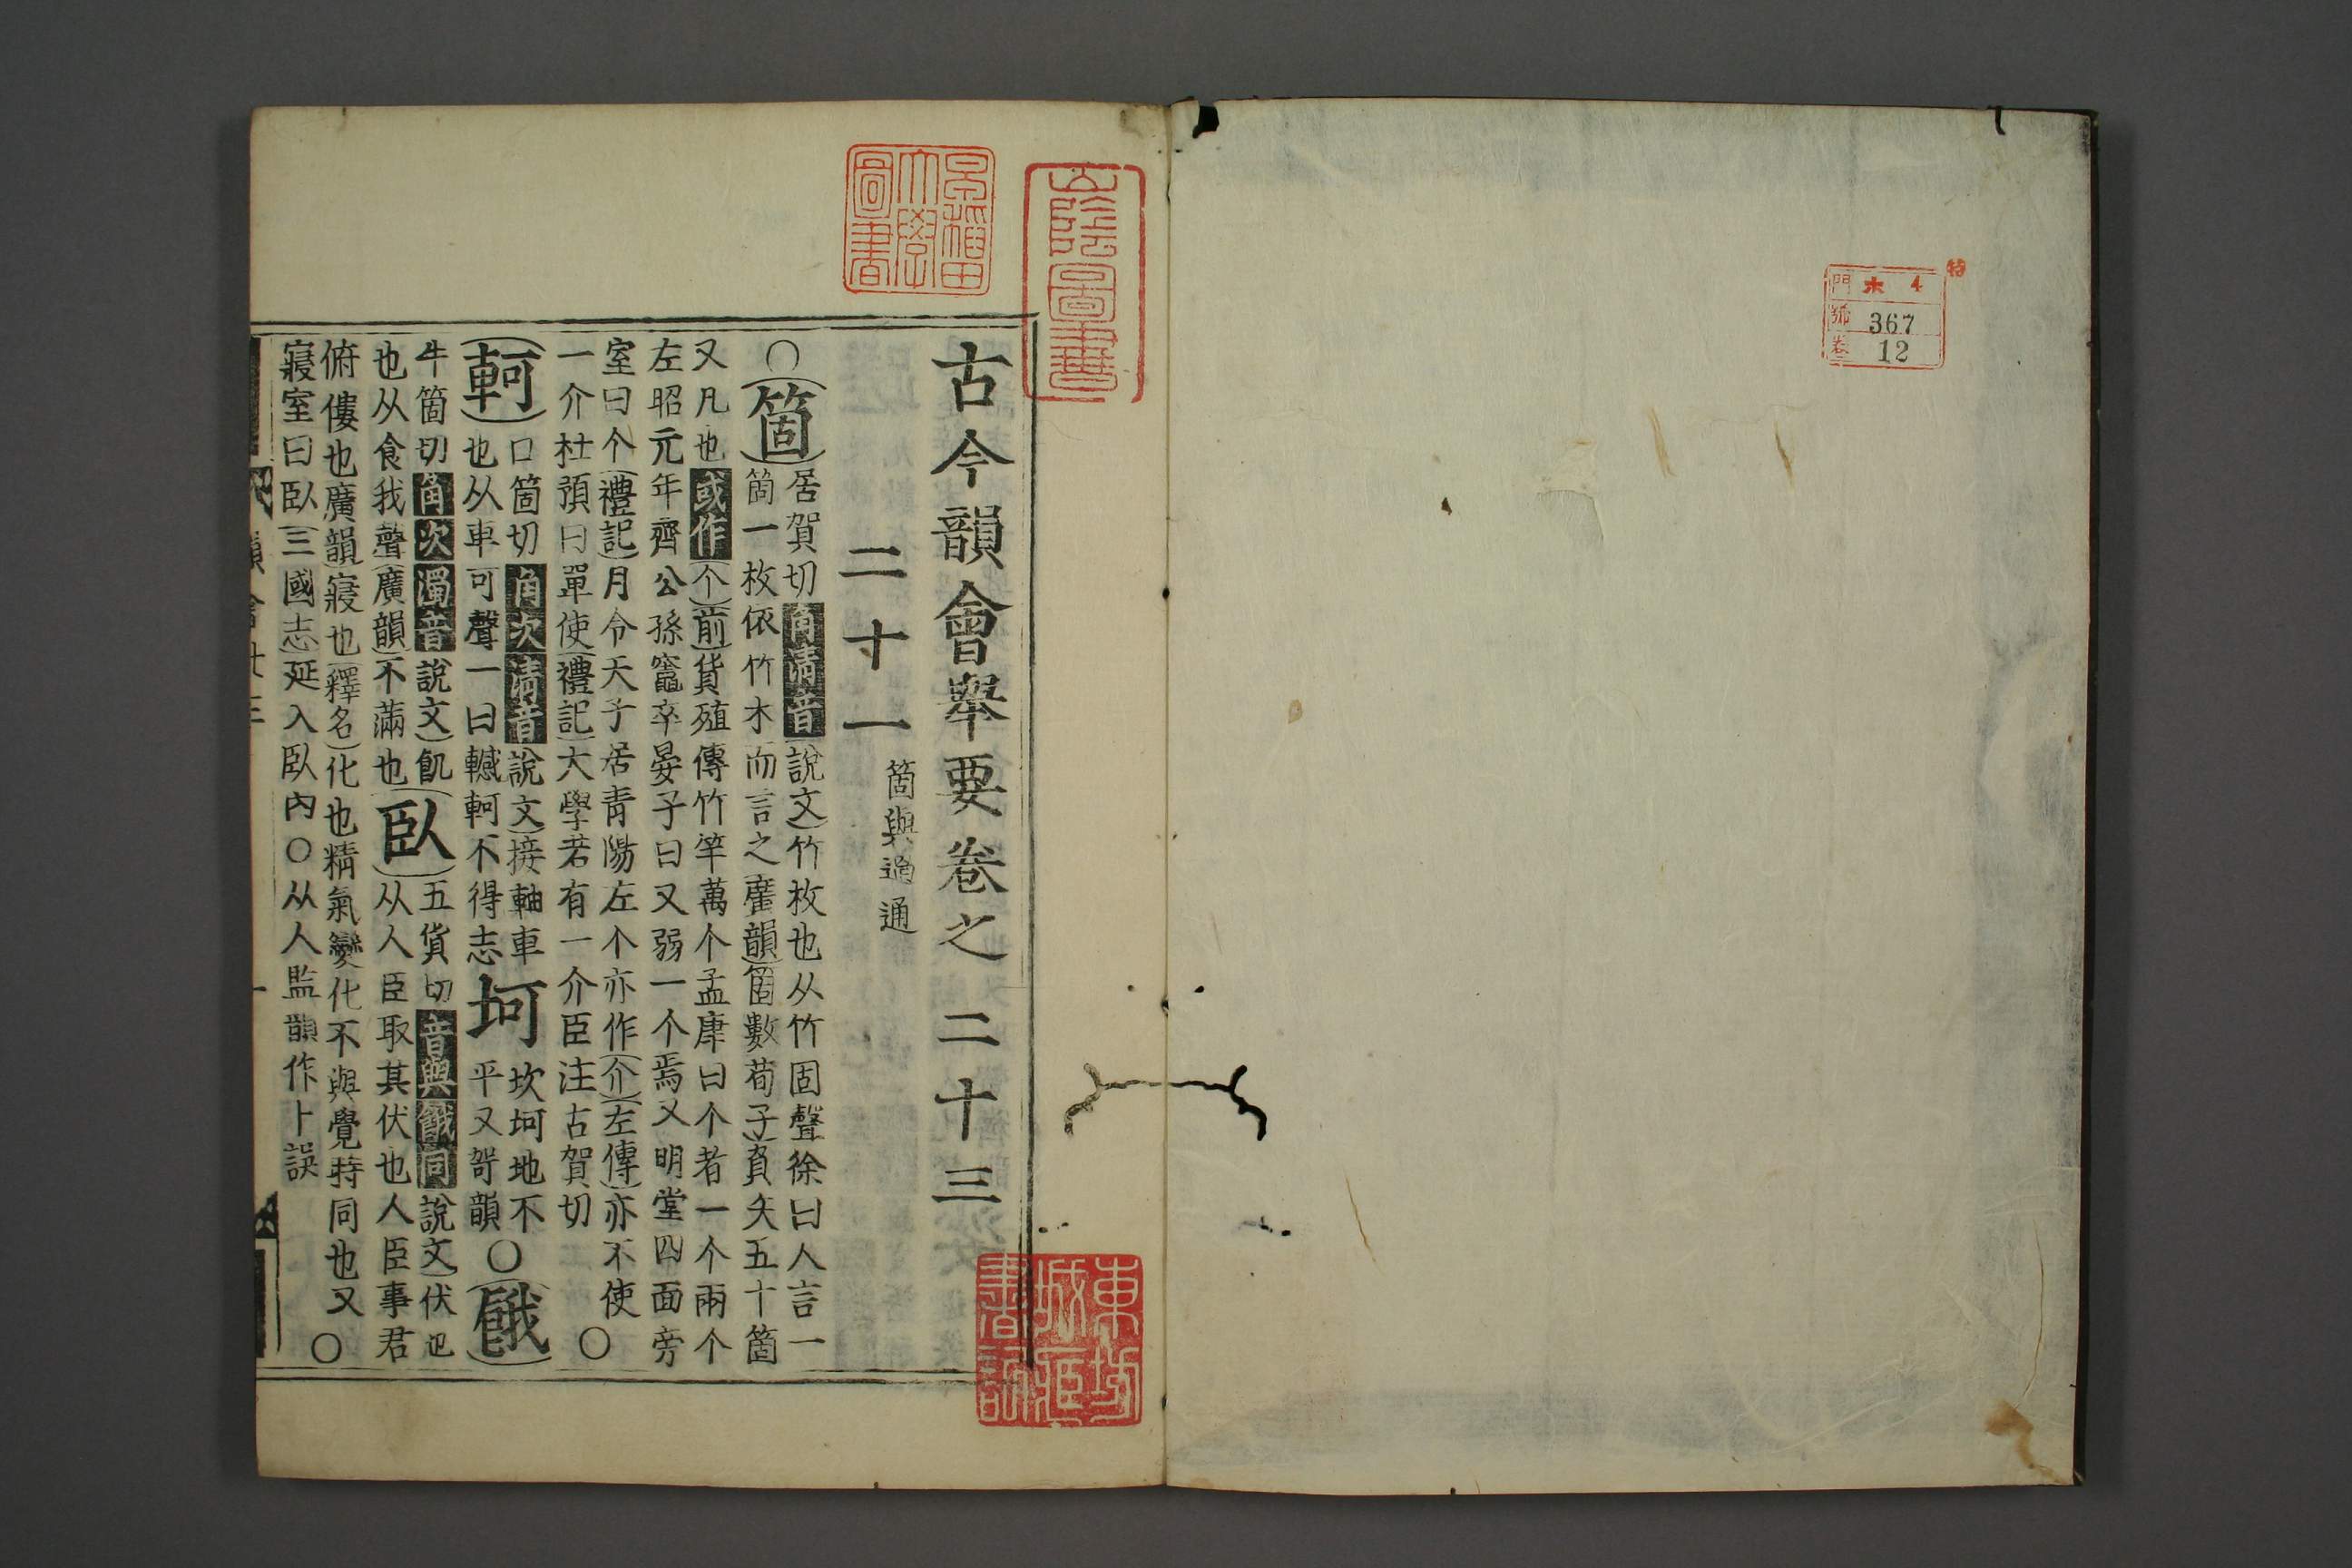 特
門 ホ 4
號 367
卷 12
古今韻會舉要卷之二十三
二十一 箇與過通
○箇 居賀切角清音說文竹枚也从竹固聲徐曰人言一
箇一枚依竹木而言之廣韻箇數荀子負矢五十箇
又凡也或作个前貨殖傳竹竿萬个孟康曰个者一个兩个
左昭元年齊公孫竈卒晏子曰又弱一个焉又明堂四面旁
室曰个禮記月令天子居青陽左个亦作介左傳亦不使
一介杜預曰單使禮記大學若有一介臣注古賀切○
軻 口箇切角次清音說文接軸車
也从車可聲一曰轗軻不得志
坷 坎坷地不
平又哿韻○
餓
牛箇切角次濁音說文飢
也从食我聲廣韻不滿也
臥 五貨切音與餓同說文伏也
从人臣取其伏也人臣事君
俯僂也廣韻寢也釋名化也精氣變化不與覺時同也又
寢室曰臥三國志延入臥內○从人監韻作卜誤○
韻會廿三
一
早稻田大學圖書
東城坊
書